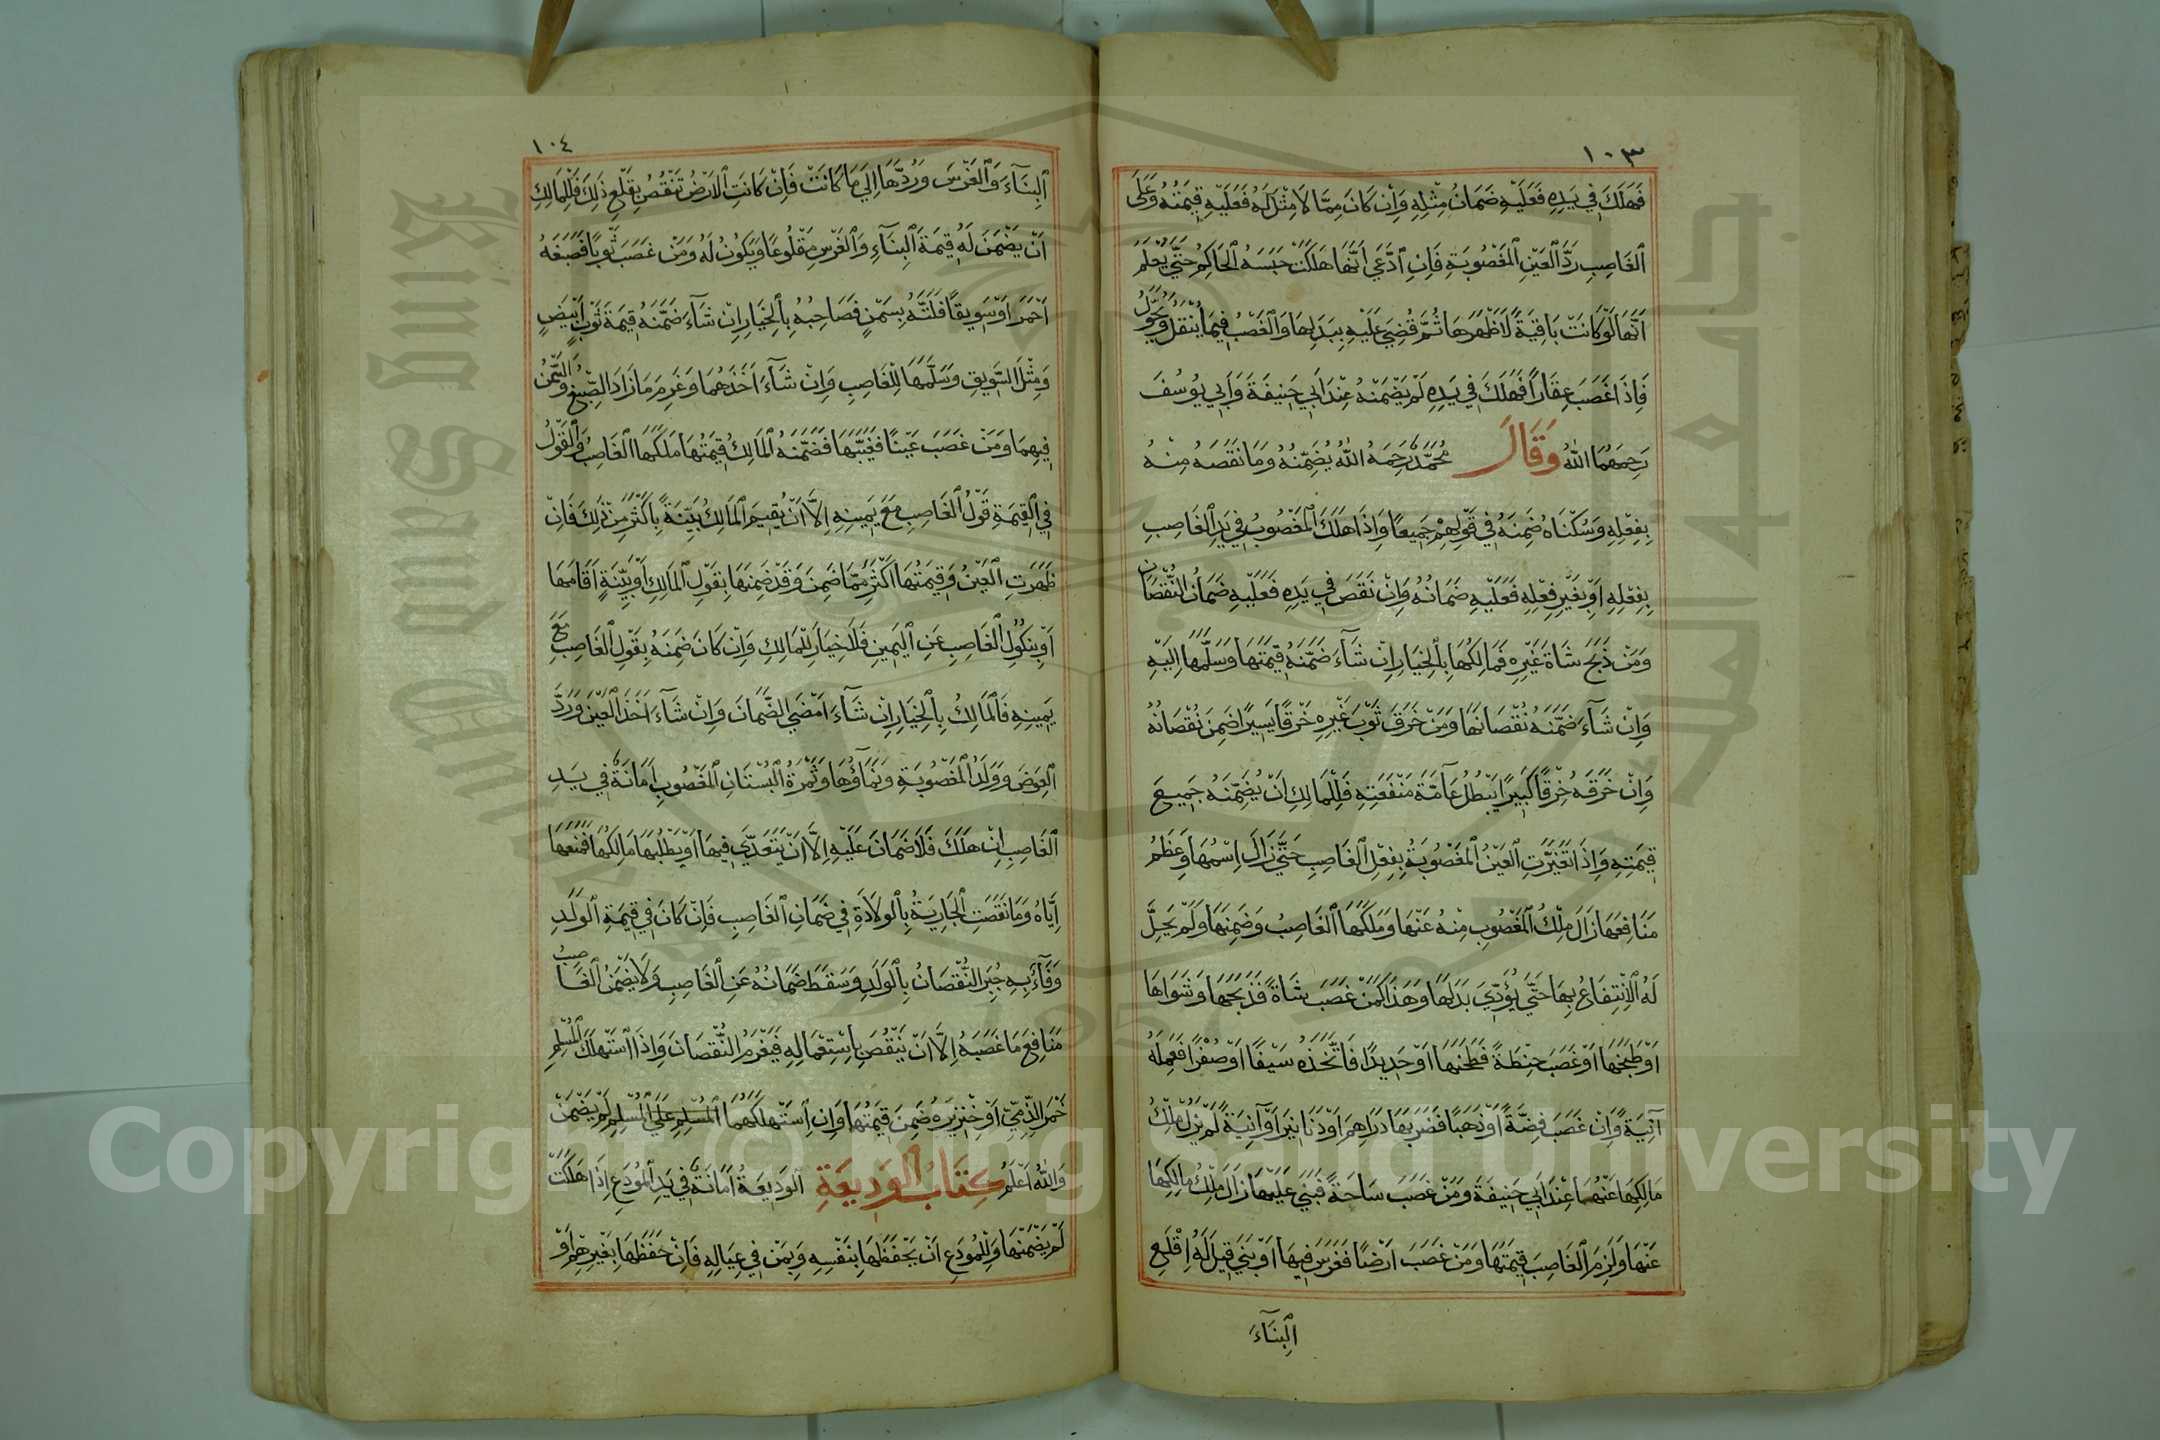 ١٠٣
فَهَلَكَ فِي يَدِهِ فَعَلَيْهِ ضَمَانُ مِثْلِهِ وَاِنْ كَانَ مِمَّا لَا مِثْلَ لَهُ فَعَلَيْهِ قِيمَتُهُ وَعَلَى
الْغَاصِبِ رَدُّ الْعَيْنِ الْمَغْصُوبَةِ فَاِنِ ادَّعَى اَنَّهَا هَلَكَتْ حَبَسَهُ الْحَاكِمُ حَتَّى يَعْلَمَ
اَنَّهَا لَوْ كَانَتْ بَاقِيَةً لَاَظْهَرَهَا ثُمَّ قُضِيَ عَلَيْهِ بِبَدَلِهَا وَالْغَصْبُ فِيمَا يُنْقَلُ وَيُحَوَّلُ
فَاِذَا غَصَبَ عِقَارًا فَهَلَكَ فِي يَدِهِ لَمْ يَضْمَنْهُ عِنْدَ اَبِي حَنِيفَةَ وَاَبِي يُوسُفَ
رَحِمَهُمَا اللهُ وَقَالَ مُحَمَّدٌ رَحِمَهُ اللهُ يُضَمِّنُهُ وَمَا نَقَصَهُ مِنْهُ
بِفِعْلِهِ وَسُكْنَاهُ ضَمِنَهُ فِي قَوْلِهِمْ جَمِيعًا وَاِذَا هَلَكَ الْمَغْصُوبُ فِي يَدِ الْغَاصِبِ
بِفِعْلِهِ اَوْ بِغَيْرِ فِعْلِهِ فَعَلَيْهِ ضَمَانُهُ وَاِنْ نَقَصَ فِي يَدِهِ فَعَلَيْهِ ضَمَانُ النُّقْصَانِ
وَمَنْ ذَبَحَ شَاةَ غَيْرِهِ فَمَالِكُهَا بِالْخِيَارِ اِنْ شَآءَ ضَمَّنَهُ قِيمَتَهَا وَسَلَّمَهَا اِلَيْهِ
وَاِنْ شَآءَ ضَمَّنَهُ نُقْصَانَهَا وَمَنْ خَرَقَ ثَوْبَ غَيْرِهِ خَرْقًا يَسِيرًا ضَمِنَ نُقْصَانُهُ
وَاِنْ خَرَقَهُ خَرْقًا كَبِيرًا يَبْطُلُ عَآمَّةَ مَنْفَعَتِهِ فَلِلْمَالِكِ اَنْ يُضَمِّنَهُ جَمِيعَ
قِيمَتِهِ وَاِذَا تَغَيَّرَتِ الْعَيْنُ الْمَغْصُوبَةُ بِفِعْلِ الْغَاصِبِ حَتَّى زَالَ اِسْمُهَا وَعَظُمَ
مَنَافِعُهَا زَالَ مِلْكُ الْمَغْصُوبِ مِنْهُ عَنْهَا وَمَلَكَهَا الْغَاصِبُ وَضَمِنَهَا وَلَمْ يَحِلَّ
لَهُ الْاِنْتِفَاعُ بِهَا حَتَّى يُؤَدِّيَ بَدَلَهَا وَهَذَا كَمَنْ غَصَبَ شَاةً فَذَبَحَهَا وَشَوَاهَا
اَوْ طَبَخَهَا اَوْ غَصَبَ حِنْطَةً فَطَحَنَهَا اَوْ حَدِيدًا فَاتَّخَذَهُ سَيْفًا اَوْ صُفْرًا فَعَمِلَهُ
آنِيَةً وَاِنْ غَصَبَ فِضَّةً اَوْ ذَهَبًا فَضَرَبَهَا دَرَاهِمَ اَوْ دَنَانِيرَ اَوْ آنِيَةً لَمْ يَزُلْ مِلْكُ
مَالِكِهَا عَنْهَا عِنْدَ اَبِي حَنِيفَةَ وَمَنْ غَصَبَ سَاحَةً فَبَنَى عَلَيْهَا زَالَ مِلْكُ مَالِكِهَا
عَنْهَا وَلَزِمَ الْغَاصِبَ قِيمَتُهَا وَمَنْ غَصَبَ اَرْضًا فَغَرَسَ فِيهَا اَوْ بَنَى قِيلَ لَهُ اِقْلَعِ
اَلْبِنَآءَ
١٠٤
اَلْبِنَآءَ وَالْغَرْسَ وَرُدَّهَا اِلَى مَا كَانَتْ فَاِنْ كَانَتِ الْاَرْضُ تَنْقُصُ بِقَلْعِ ذَلِكَ فَلِلْمَالِكِ
اَنْ يَضْمَنَ لَهُ قِيمَةَ الْبِنَآءِ وَالْغَرْسِ مَقْلُوعًا وَيَكُونُ لَهُ وَمَنْ غَصَبَ ثَوْبًا فَصَبَغَهُ
اَحْمَرَ اَوْ سَوِيقًا فَلَتَّهُ بِسَمْنٍ فَصَاحِبُهُ بِالْخِيَارِ اِنْ شَآءَ ضَمَّنَهُ قِيمَةَ ثَوْبٍ اَبْيَضٍ
وَمِثْلَ السَّوِيقِ وَسَلَّمَهَا لِلْغَاصِبِ وَاِنْ شَآءَ اَخَذَهُمَا وَغَرِمَ مَا زَادَ الصِّبْغُ وَالسَّمْنُ
فِيهِمَا وَمَنْ غَصَبَ عَيْنًا فَغَيَّبَهَا فَضَمَّنَهُ الْمَالِكُ قِيمَتَهَا مَلَكَهَا الْغَاصِبُ وَالْقَوْلُ
فِي الْقِيمَةِ قَوْلُ الْغَاصِبِ مَعَ يَمِينِهِ اِلَّا اَنْ يُقِيمَ الْمَالِكُ بَيِّنَةً بِاَكْثَرَ مِنْ ذَلِكَ فَاِنْ
ظَهَرَتِ الْعَيْنُ وَقِيمَتُهَا اَكْثَرُ مِمَّا ضَمِنَ وَقَدْ ضَمِنَهَا بِقَوْلِ الْمَالِكِ اَوْ بِبَيِّنَةٍ اَقَامَهَا
اَوْ بِنُكُولِ الْغَاصِبِ عَنِ الْيَمِينِ فَلَا خِيَارَ لِلْمَالِكِ وَاِنْ كَانَ ضَمِنَهُ بِقَوْلِ الْغَاصِبِ مَعَ
يَمِينِهِ فَالْمَالِكُ بِالْخِيَارِ اِنْ شَآءَ اَمْضَى الضَّمَانَ وَاِنْ شَآءَ اَخَذَ الْعَيْنَ وَرَدَّ
الْعِوَضَ وَوَلَدُ الْمَغْصُوبَةِ وَنَمَآؤُهَا وَثَمَرَةُ الْبُسْتَانِ الْمَغْصُوبِ اَمَانَةٌ فِي يَدِ
الْغَاصِبِ اِنْ هَلَكَ فَلَا ضَمَانَ عَلَيْهِ اِلَّا اَنْ يَتَعَدَّى فِيهَا اَوْ يَطْلُبُهَا مَالِكُهَا فَمَنَعَهَا
اِيَّاهُ وَمَا نَقَصَتِ الْجَارِيَةُ بِالْوِلَادَةِ فِي ضَمَانِ الْغَاصِبِ فَاِنْ كَانَ فِي قِيمَةِ الْوَلَدِ
وَفَآءٌ بِهِ جُبِرَ النُّقْصَانُ بِالْوَلَدِ وَسَقَطَ ضَمَانُهُ عَنِ الْغَاصِبِ وَلَا يَضْمَنُ الْغَاصِبُ
مَنَافِعَ مَا غَصَبَهُ اِلَّا اَنْ يَنْقُصَ بِاسْتِعْمَالِهِ فَيَغْرَمُ النُّقْصَانَ وَاِذَا اسْتَهْلَكَ الْمُسْلِمُ
خَمْرَ الذِّمِّيِّ اَوْ خِنْزِيرَهُ ضَمِنَ قِيمَتَهَا وَاِنِ اسْتَهْلَكَهُمَا الْمُسْلِمِ عَلَى الْمُسْلِمِ لَمْ يَضْمَنْ
وَاللهُ اَعْلَمُ كِتَابُ الْوَدِيعَةِ الْوَدِيعَةُ اَمَانَةٌ فِي يَدِ الْمُودَعِ اِذَا هَلَكَتْ
لَمْ يَضْمَنْهَا وَلِلْمُودَعِ اَنْ يَحْفَظَهَا بِنَفْسِهِ وَبِمَنْ فِي عِيَالِهِ فَاِنْ حَفِظَهَا بِغَيْرِهِمْ اَوْ
King Saud University
جامعة الملك سعود
1957
Copyright © King Saud University